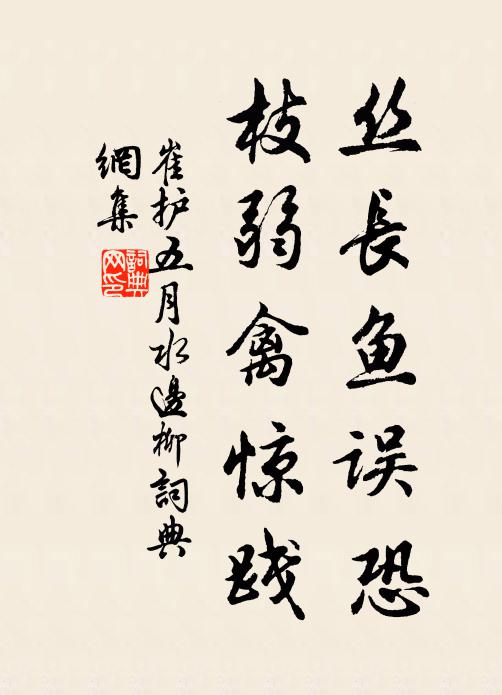 丝长鱼误恐
枝弱禽惊践
崔护五月水邊柳詞典
網集
詞典
网印